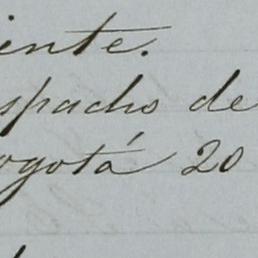 iente.
spacho de
ogotá 20